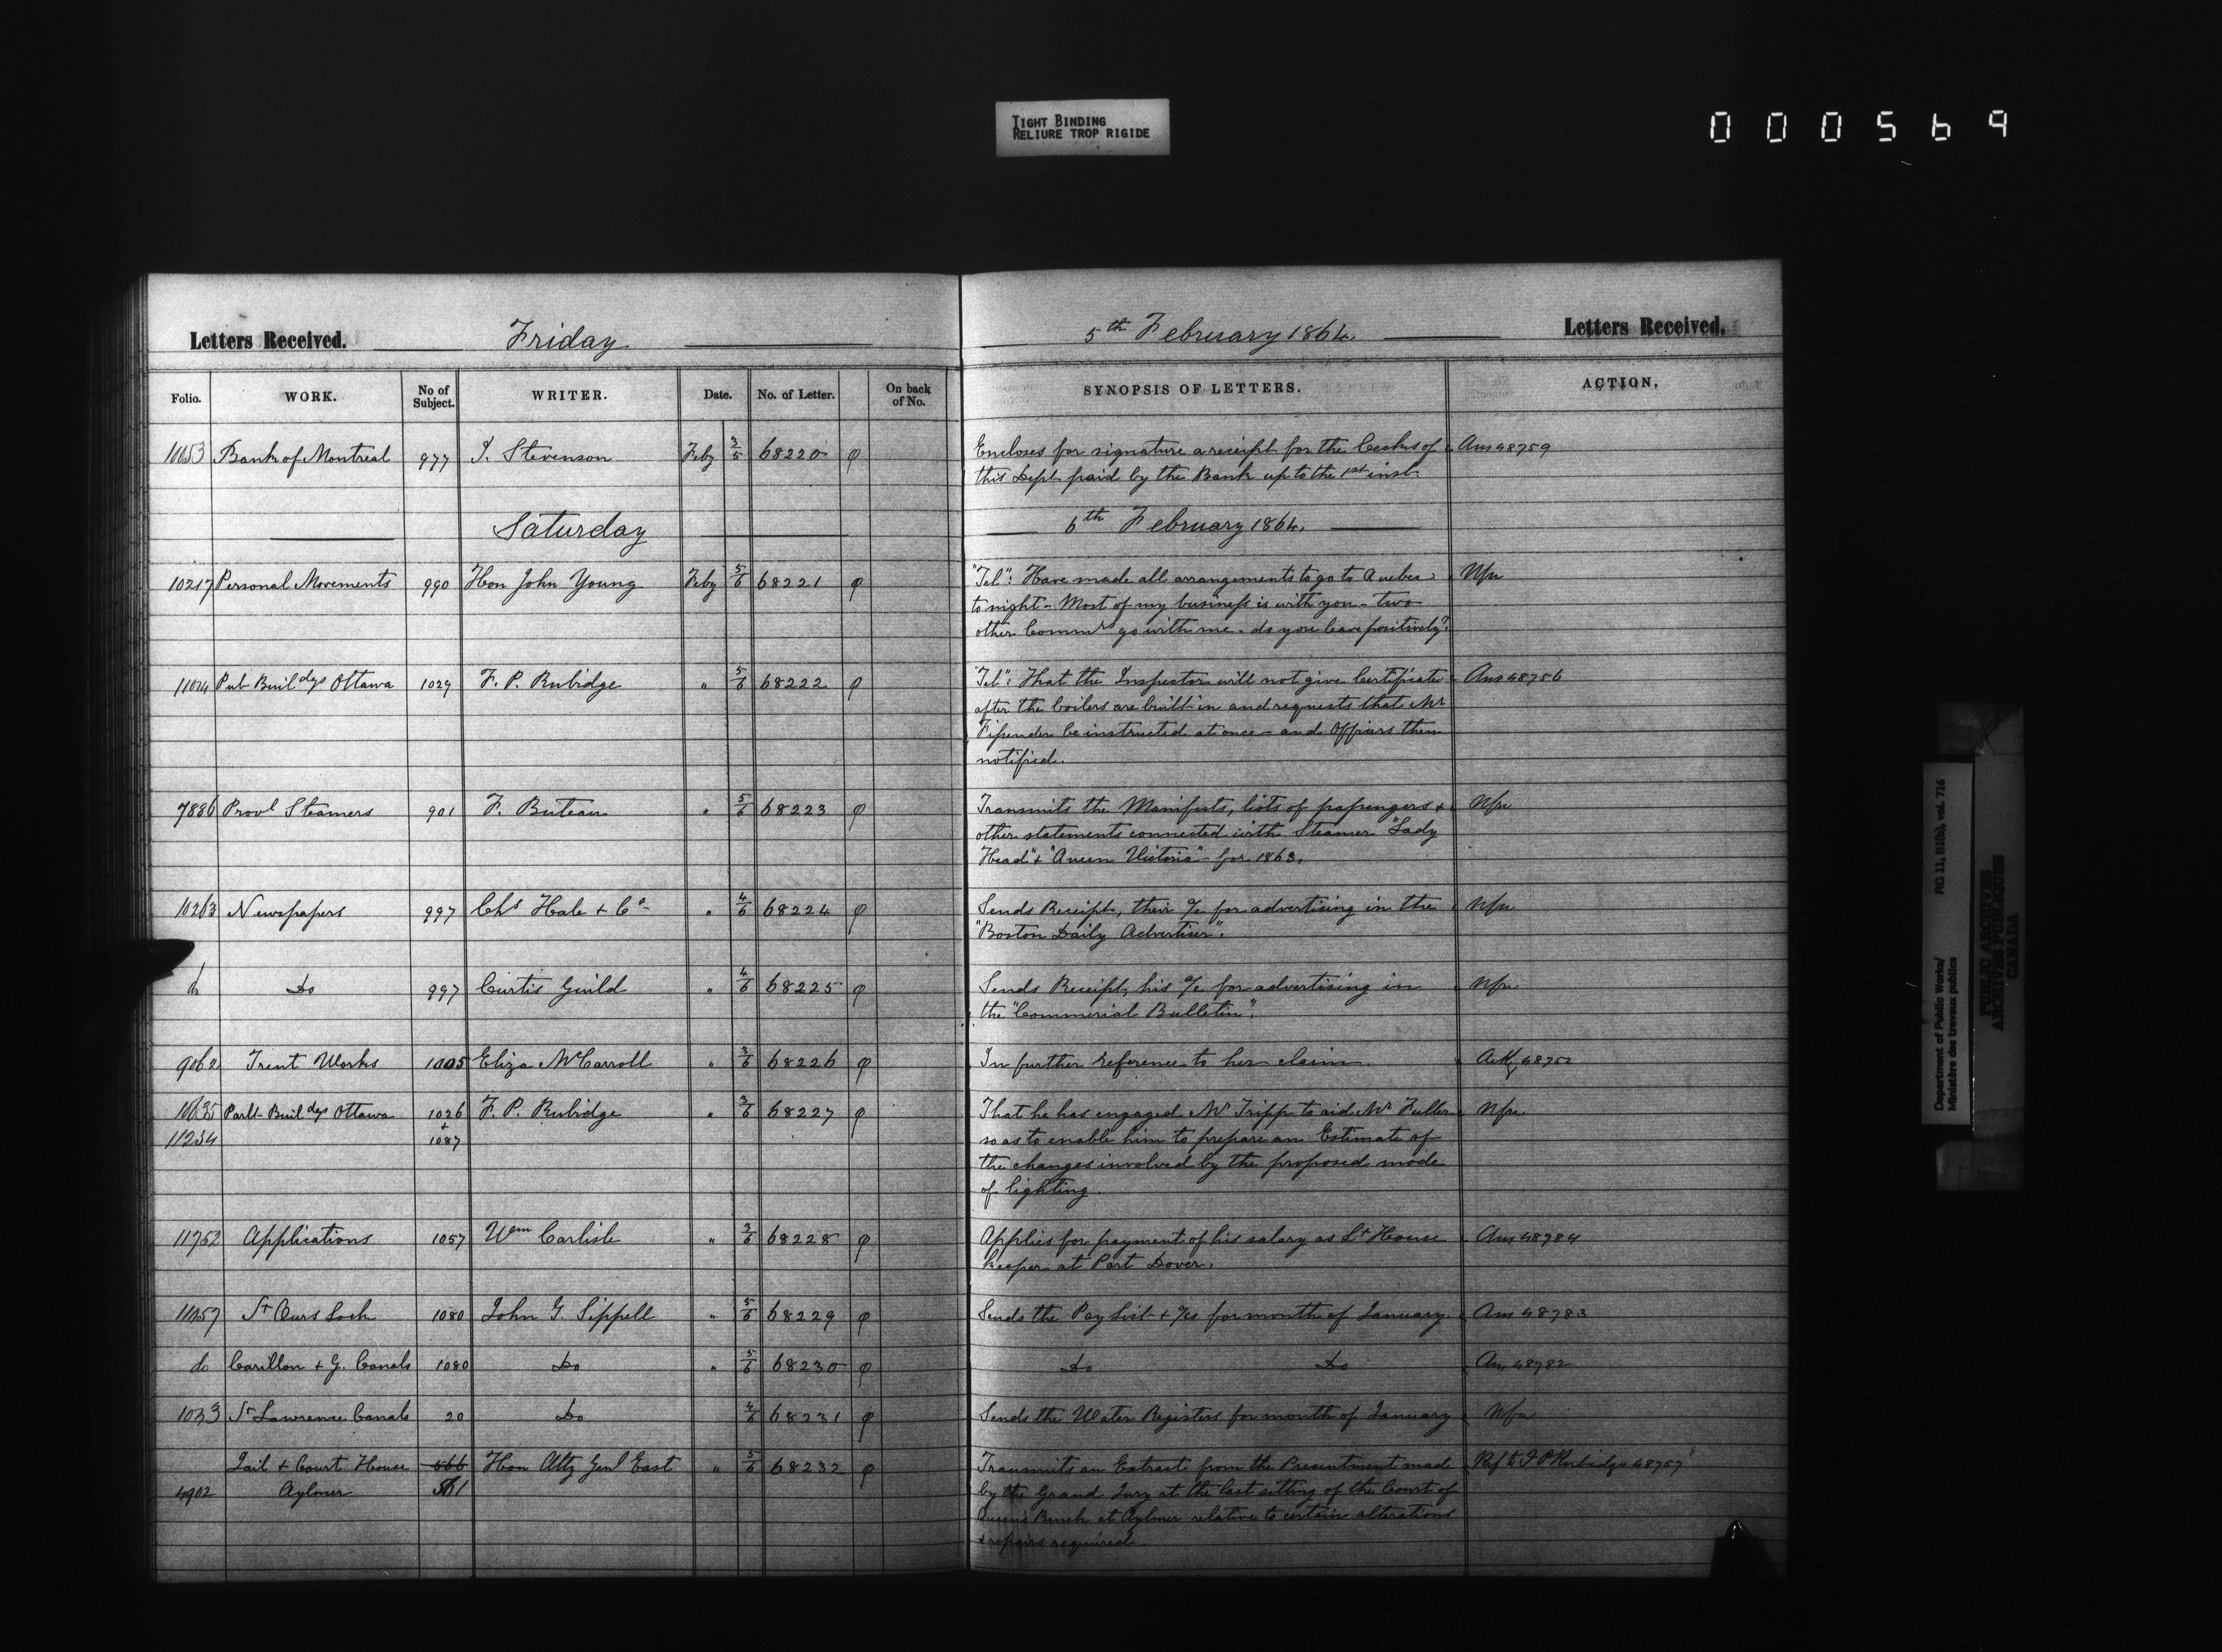 TIGHT BINDING
RELIURE TROP RIGIDE
000569
Letters Received. Friday 5th February 1864. Letters Received.
Folio. WORK. No of Subject. WRITER. Date. No. of Letter. On back of No. SYNOPSIS OF LETTERS. ACTION.
Bank of Montreal 977 J. Stevenson Feby 3/5 68220 φ Encloses for signature a receipt for the Cecks of Ans 48759
this Dept paid by the Bank up to the 1st inst
Saturday 6th February 1864.
10217 Personal Movements 990 Hon John Young Feby 5/6 68221 φ "Tel": Have made all arrangements to go to Quebec Nfn
to night - Most of my business is with you - two
other Commrs go with me. do you leave positively?
11014 Pub Buildgs Ottawa 1029 F. P. Rubidge " 5/6 68222 φ "Tel": That the Inspector will not give Certificate Ans 48756
after the boilers are built in and requests that Mr
be instructed at once - and Officers then
notified.
7886 Provl Steamers 901 F. Buteau " 5/6 68223 φ Transmits the Manifests, lists of passengers + Nfn
other statements connected with Steamer "Lady
Head" + "Queen Victoria" for 1863.
10263 Newspapers 997 Chs Hale + Co " 4/6 68224 φ Sends Receipt, their a/c for advertising in the Nfn
"Boston Daily Advertiser".
do Do 997 Curtis Guild " 4/6 68225 φ Sends Receipt, his a/c for advertising in Nfn
the "Commercial Bulletin".
9062 Trent Works 1005 Eliza McCarroll " 3/6 68226 φ In further reference to her claim. Ack 48752
Parlt Buildgs Ottawa 1026 F. P. Rubidge " 3/6 68227 φ That he has engaged Mr Tripp to aid Mr Fuller Nfn
11234 + 1087 so as to enable him to prepare an Estimate of
the changes involved by the proposed mode
of lighting.
11752 Applications 1057 Wm Carlisle " 3/6 68228 φ Applies for payment of his salary as Lt House Ans 48784
keeper at Port Dover.
11157 St Ours Lock 1080 John G. Sippell " 5/6 68229 φ Sends the Pay List + a/cs for month of January. Ans 48783
do Carillon + G. Canals 1080 Do " 5/6 68230 φ Do Do Ans 48782
St Lawrence Canals 20 Do 4/6 68231 φ Sends the Water Registers for month of January Nfn
Jail + Court House 566 Hon Atty Genl East " 5/6 68232 φ Transmits an Extract from the Presentment made Ref to F P Rubidge 48757
4902 Aylmer by the Grand Jury at the last sitting of the Court of
Queen's Bench at Aylmer relative to certain alterations
+ repairs required.
Department of Public Works/ RG 11, B1(b), vol. 716
Ministère des travaux publics
PUBLIC ARCHIVES
ARCHIVES PUBLIQUES
CANADA